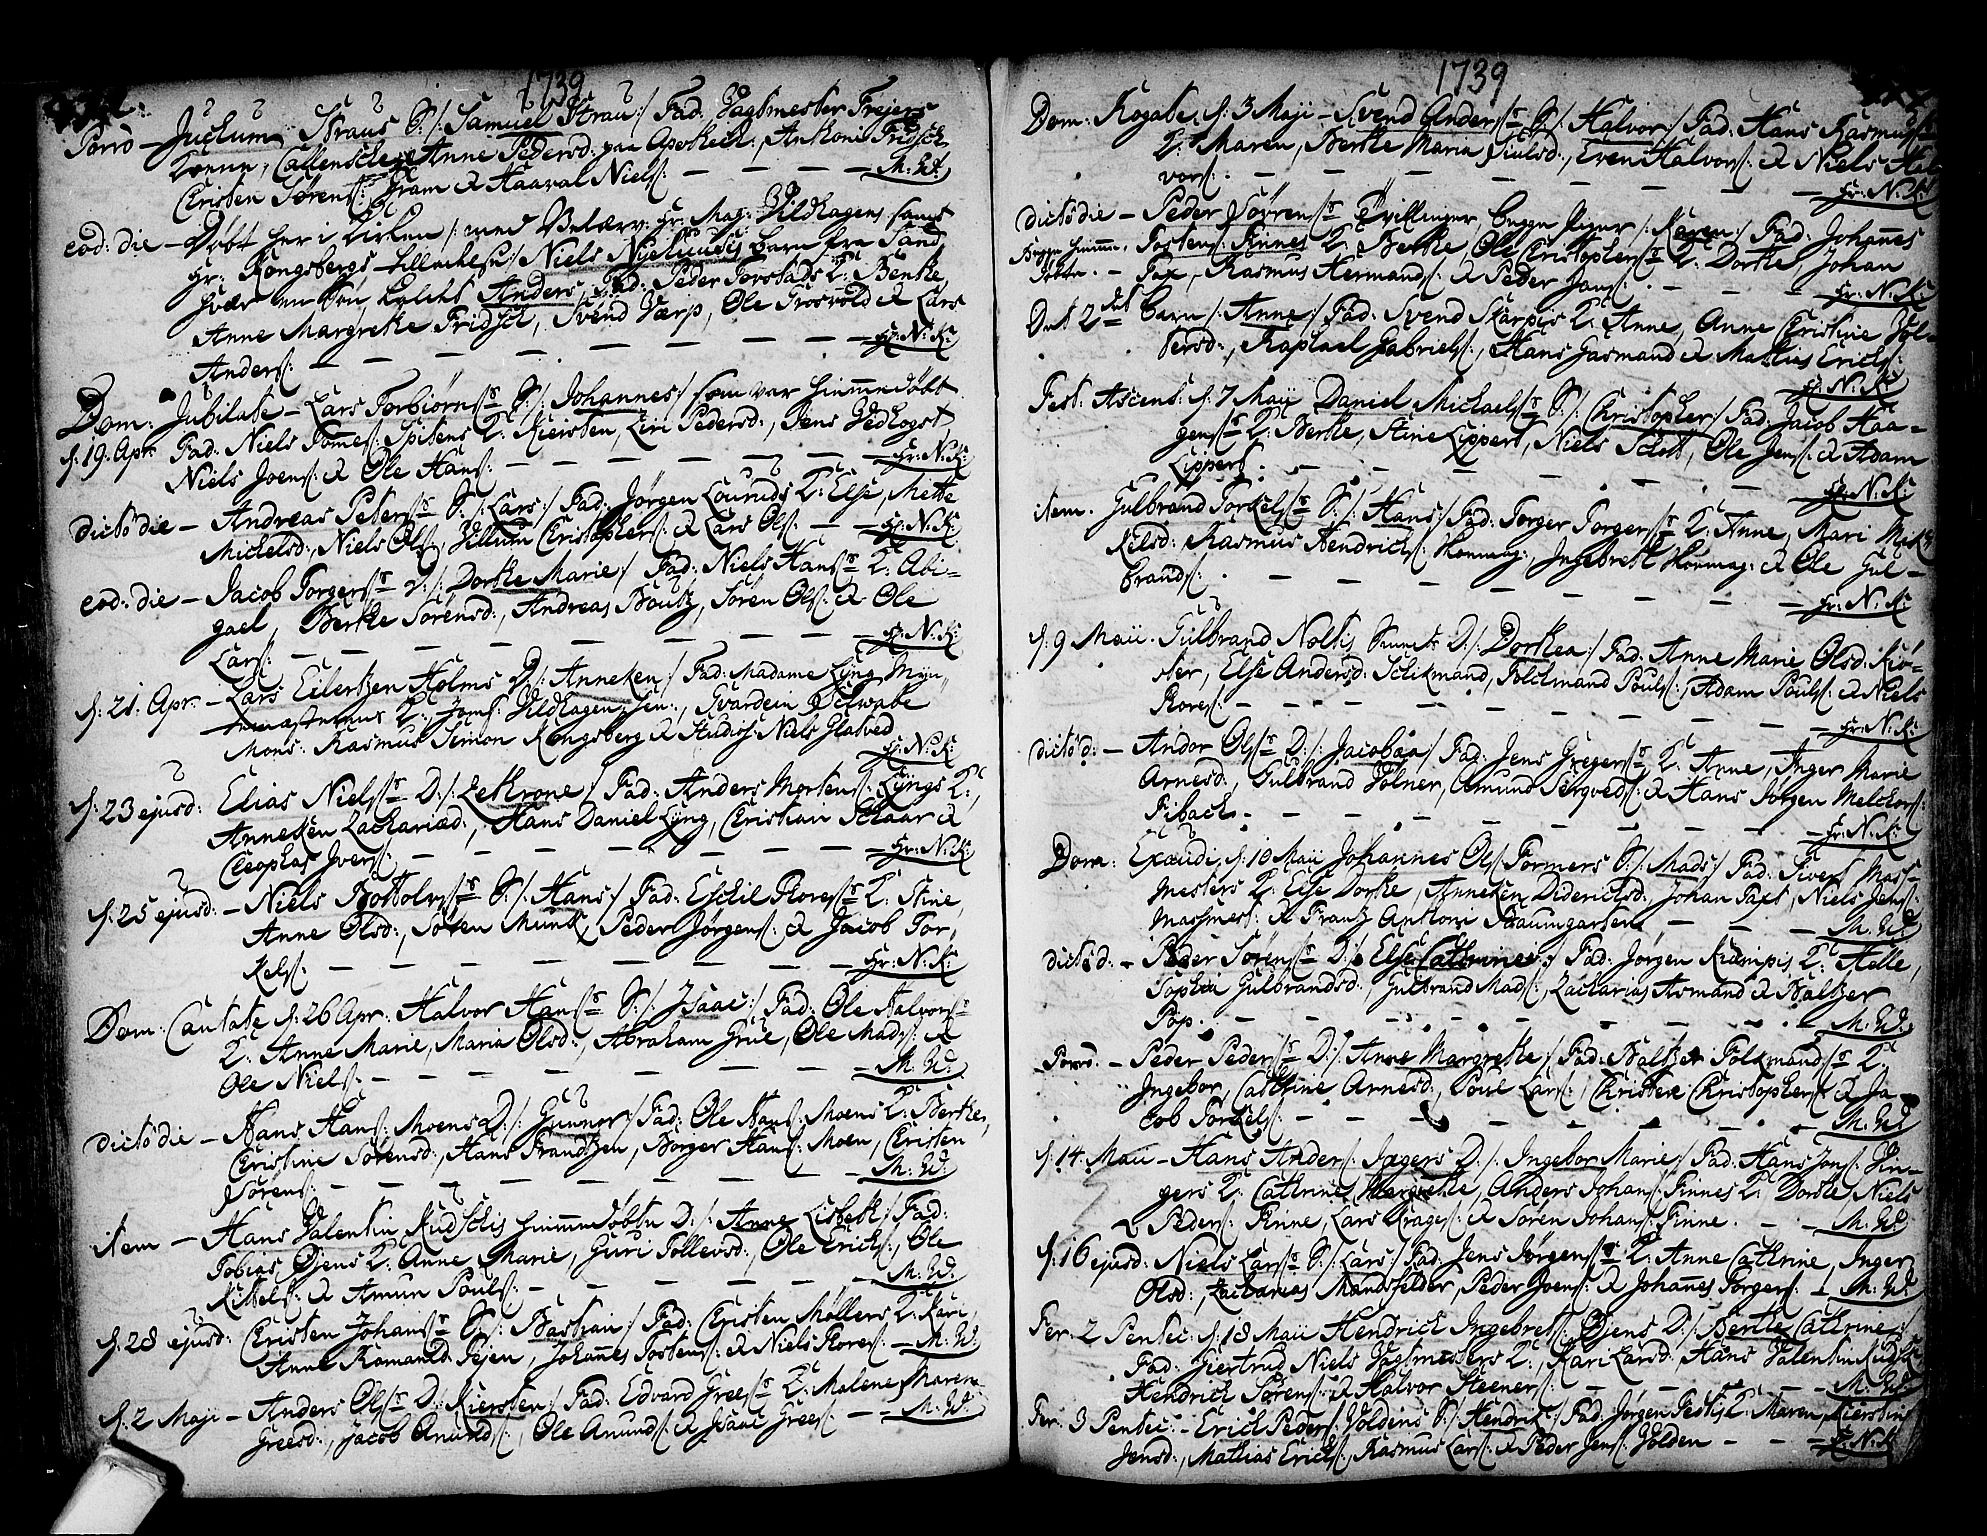 1739
Porro – Juckum Kraus S:/: Samuel Krau:/ Fad: Vagtmester Frejers
Konen, Callensche, Anne Pedersd: paa Apothech:, Anthoni Fridsch
Christen Sørens: Fram & Haaval Niels: – – – – M: W:
eod: die – Døbt her i Kirken /: med Velærv: Hr: Mag: Vildhagens sams
Hr: Kongsbergs tilladelse:/ Niels Nyelunds barn fra Sand
Anders Fad: Peder Torstads K: Benthe
Anne Margrethe Fridsch, Svend Værp, Ole Trosvold & Lars
Anders: – – – – – Hr: N: K:
Dom: Jubilate – Lars Torbiørns: S:/: Johannes:/ som var hiemmedøbt
d: 19. Apr: Fad: Niels Tommes: K: Kiersten, Liri Pedersd:, Jens Vedlogst
Niels Joens: & Ole Hans: – – – – Hr: N: K:
dictô die – Andreas Peters: S:/: Lars:/ Fad: Jørgen Lourids K: Else, Mette
Michelsd:, Niels Ols:, Villum Christophers: & Lars Ols: – – Hr: N: K:
eod: die – Jacob Torgers: D:/: Dorthe Marie:/ Fad: Niels Hans: K: Abi-
gael, Berthe Sørensd:, Andreas Boutz, Søren Ols: & Ole
Lars: – – – – – Hr: N: K:
d: 21. Apr: – Lars Eilertzen Holms D:/: Anneken:/ Fad: Madame Lyng, Myn-
K:, Joms: Vildhagen, Jun:, Gvardein Schwabe
Mons: Rasmus Simon Kongsberg & Studios: Niels Glatved
Hr: N: K:
d: 23 ejusd: Elias Niels: D:/: Zethrone:/ Fad: Anders Mortens: Lyngs K:,
Anneken Zachariæd:, Hans Daniel Lyng, Christian Schaar &
Cleophas Ivers: – – – – Hr: N: K:
d: 25 ejusd: – Niels Bottolvs: S:/: Hans:/ Fad: Eschil Rores: K: Stine,
Anne Olsd:, Søren Munk, Peder Jørgens: & Jacob Tor-
kels: – – – – – Hr: N: K:
Dom: Cantate d: 26 Apr: Halvor Hans: S:/: Isaac:/ Fad: Ole Halvors:
K: Anne Marie, Maria Olsd:, Abraham Grue, Ole Mads: &
Ole Niels: – – – – M: W:
dictô die – Hans Hans: Moens D:/: Gunnor:/ Fad: Ole Hans: Moens K: Berthe,
Christine Sørensd:, Hans Frandtzen, Borger Hans: Moen, Christen
Sørens: – – – – M: W:
item – Hans Valentin Kudschis hiemmedøbte D:/: Anne Lisbeth:/ Fad:
Tobias Djens K: Anne Marie, Guri Tollevsd:, Ole Erichs:, Ole
Kittels: & Amun Pouls: – – – – M: W:
d: 28 ejusd: Christen Johans: S:/: Bastian:/ Fad: Christen Møllers K: Kari,
Anne Romanld: Pejen, Johannes Tostens: & Niels Rores: – M: W:
d: 2 Maji – Anders Ols: D:/: Kiersten:/ Fad: Edvard Grees: K: Malene, Maren
Greesd:, Jacob Anunds:, Ole Anunds: & Isaac Grees: – – M: W:
1739
Dom: Rogate, d: 3 Maji – Svend Anders: S:/: Halvor:/ Fad: Hans Rasmus:
K: Maren, Berthe Maria Juulsd:, Even Halvors: & Niels Hal-
vors: – – – – – Hr: N: K:
dictô die – Peder Sørrens: Tvillinger, begge Piger /: Karen:/ Fad: Johannes
Tostens: Finnes K: Berthe, Ole Christophers: K: Dorthe, Johan
Pax, Rasmus Hermands: & Peder Jans: – – – Hr: N: K:
Det 2det barn /: Anne:/ Fad: Svend Skarpis K: Anne, Anne Christine Vol-
bersd:, Raphael Gabriels:, Hans Gasmand & Mathias Erichs:
Hr: N: K:
Fest: Ascens: d: 7 Maji Daniel Michaels: S:/: Christopher:/ Fad: Jacob Haa-
gens: K: Berthe, Stine Lippert, Niels Schott, Ole Jens: & Adam
Lippert. – – – – – Hr: N: K:
item. Gulbrand Torkels: S:/: Hans:/ Fad: Torger Torgers: K: Anne, Mari
Kilsd: Rasmus Hendrichs: Honmag:, Ingebreth Honmag: & Ole Gul-
brands: – – – – Hr: N: K:
d: 9 Maii. Gulbrand Noltis D:/: Dorthea:/ Fad: Anne Marie Olsd: Kiø-
ster, Else Andersd: Schikmand, Folckmand Pouls:, Adam Pouls: & Niels
Rores: – – – – – Hr: N: K:
dictô d: – Andor Ols: D:/: Jacobæa:/ Fad: Jens Gregers: K: Anne, Inger Marie
Arnesd:, Gulbrand Volner, Amund Sergveds: & Hans Jørgen Melchors:
Fibach. – – – – – Hr: N: K:
Dom: Exaudi, d: 10 Maii Johannes Ols: Formers S:/: Mads:/ Fad: Sivert Mas-
mesters K: Else Dorthe, Anneken Diderichsd:, Johan Paxs, Niels Jens:
Masmest: & Frantz Anthoni Baumgarten. – – – M: W:
dictô d: – Peder Sørens: D:/: Else Cathrine:/ Fad: Jørgen Krimpis K: Helle,
Sophia Gulbrandsd:, Gulbrand Mads:, Zacharias Asmand & Baltzer
Pop. – – – – – M: W:
Porrô. – Peder Peders: D:/: Anne Margrethe:/ Fad: Baltzer Folkmands: K:
Ingebor, Cathrine Arnesd:, Povel Lars:, Christen Christophers: & Ja-
cob Torkels: – – – – – M: W:
d: 14. Maii – Hans Anders: Jægers D:/: Ingebor Marie:/ Fad: Hans Jons:
gers K: Cathrine Margrethe, Anders Johans: Finnes K: Dorthe, Niels
Peders: Finne, Lars Krages: & Søren Johans: Finne. – – M: W:
d: 16 ejusd: Niels Lars: S:/: Lars:/ Fad: Jens Jørgens: K: Anne Cathrine, Inger
Olsd:, Zacharias Mandsfelder, Peder Joens: & Johannes Torgers: – M: W:
Fer: 2 Pentec: d: 18 Maii Hendrich Ingebrets: Djens D:/: Berthe Cathrine:/
Fad: Giertrud Niels Vagtmesters K:, Kari Larsd: Hans Valentin Kudsk,
Hendrich Sørens: & Halvor Steeners: – – – M: W:
Fer: 3 Pentec: – Erich Peders: Voldens S:/: Hendrik:/ Fad: Jørgen Pestis K: Maren, Kierstine
Jensd:, Mathias Erichs:, Rasmus Lars: & Peder Jens: Volden – – – Hr: N: K: